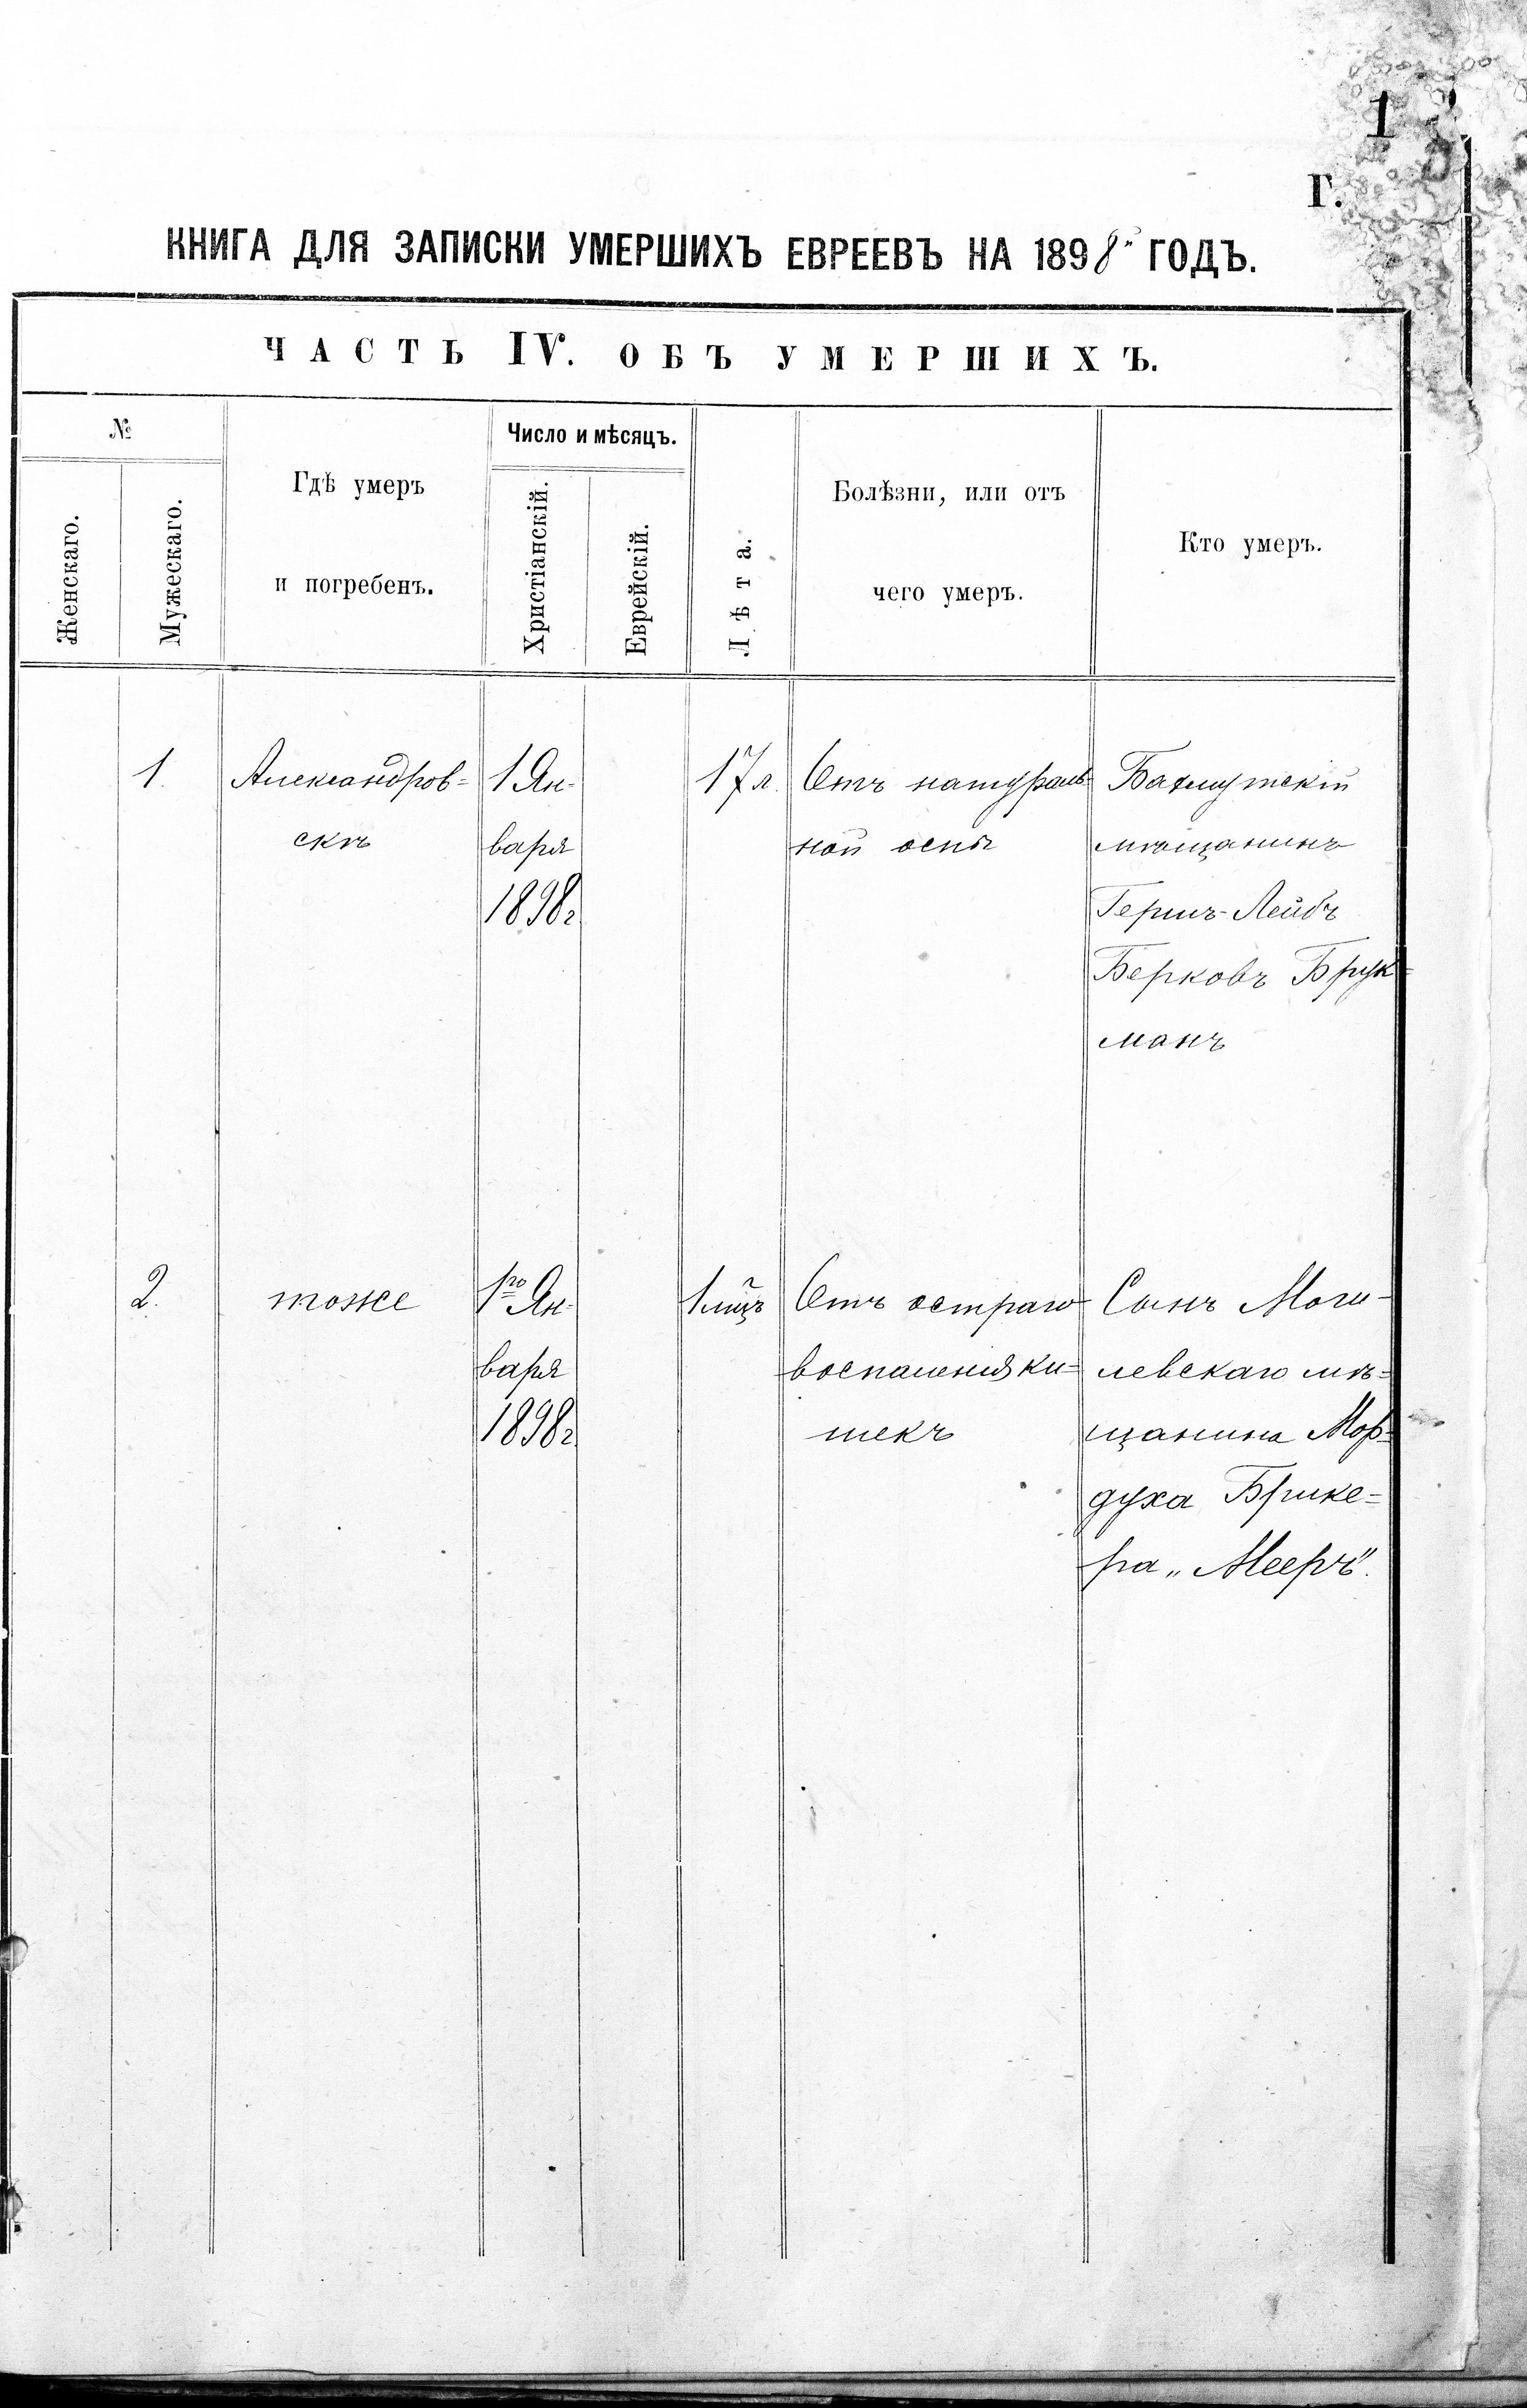 1
Г.
КНИГА ДЛЯ ЗАПИСКИ УМЕРШИХЪ ЕВРЕЕВЪ НА 1898 ГОДЪ.
ЧАСТЬ IV. ОБЪ УМЕРШИХЪ.
№
Женскаго.
Мужескаго.
Гдѣ умеръ
и погребенъ.
Число и мѣсяцъ.
Христіанскій.
Еврейскій.
Лѣта.
Болѣзни, или отъ
чего умеръ.
Кто умеръ.
1.
Александров=
скѣ
1 Ян-
варя
1898 г
17 л.
Отъ натураль-
ной оспы
Бахмутскій
мѣщанинъ
Гершъ-Лейбъ
Берковъ Брук=
манъ
2.
тоже
1го Ян-
варя
1898 г
1 мцъ
Отъ остраго
воспаленія ки=
шекъ
Сынъ Моги-
левскаго мѣ=
щанина Мор=
духа Брике=
ра „Мееръ".